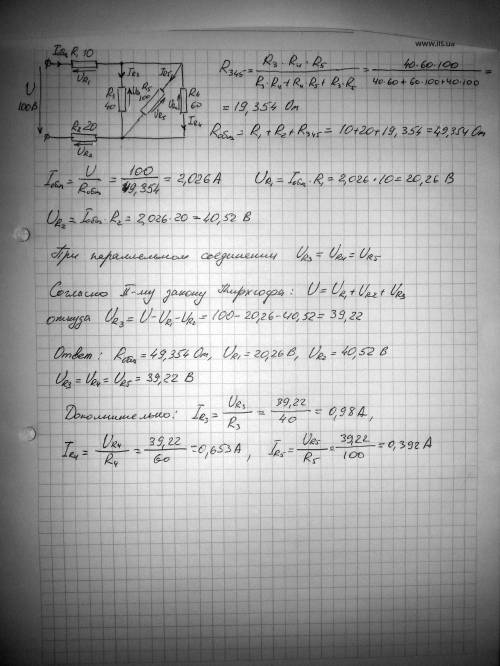 www.its.ua
Iобщ R1 10
UR1
IR3
IR5
R3 40
UR3
R5 100
UR5
UR4
R4 60
IR4
U 100В
R2 20
UR2
R345 = R3·R4·R5 / R3·R4+R4·R5+R3·R5 = 40·60·100 / 40·60+60·100+40·100 =
= 19,354 Ом
Rобщ = R1+R2+R345 = 10+20+19,354 = 49,354 Ом
Iобщ = U / Rобщ = 100 / 49,354 = 2,026 А UR1 = Iобщ·R1 = 2,026·10 = 20,26 В
UR2 = Iобщ·R2 = 2,026·20 = 40,52 В
При параллельном соединении UR3 = UR4 = UR5
Согласно II-му закону Кирхгофа: U = UR1 + UR2 + UR3
откуда UR3 = U-UR1-UR2 = 100-20,26-40,52 = 39,22
Ответ: Rобщ = 49,354 Ом, UR1 = 20,26 В, UR2 = 40,52 В
UR3 = UR4 = UR5 = 39,22 В
Дополнительно: IR3 = UR3 / R3 = 39,22 / 40 = 0,98 А,
IR4 = UR4 / R4 = 39,22 / 60 = 0,653 А, IR5 = UR5 / R5 = 39,22 / 100 = 0,392 А